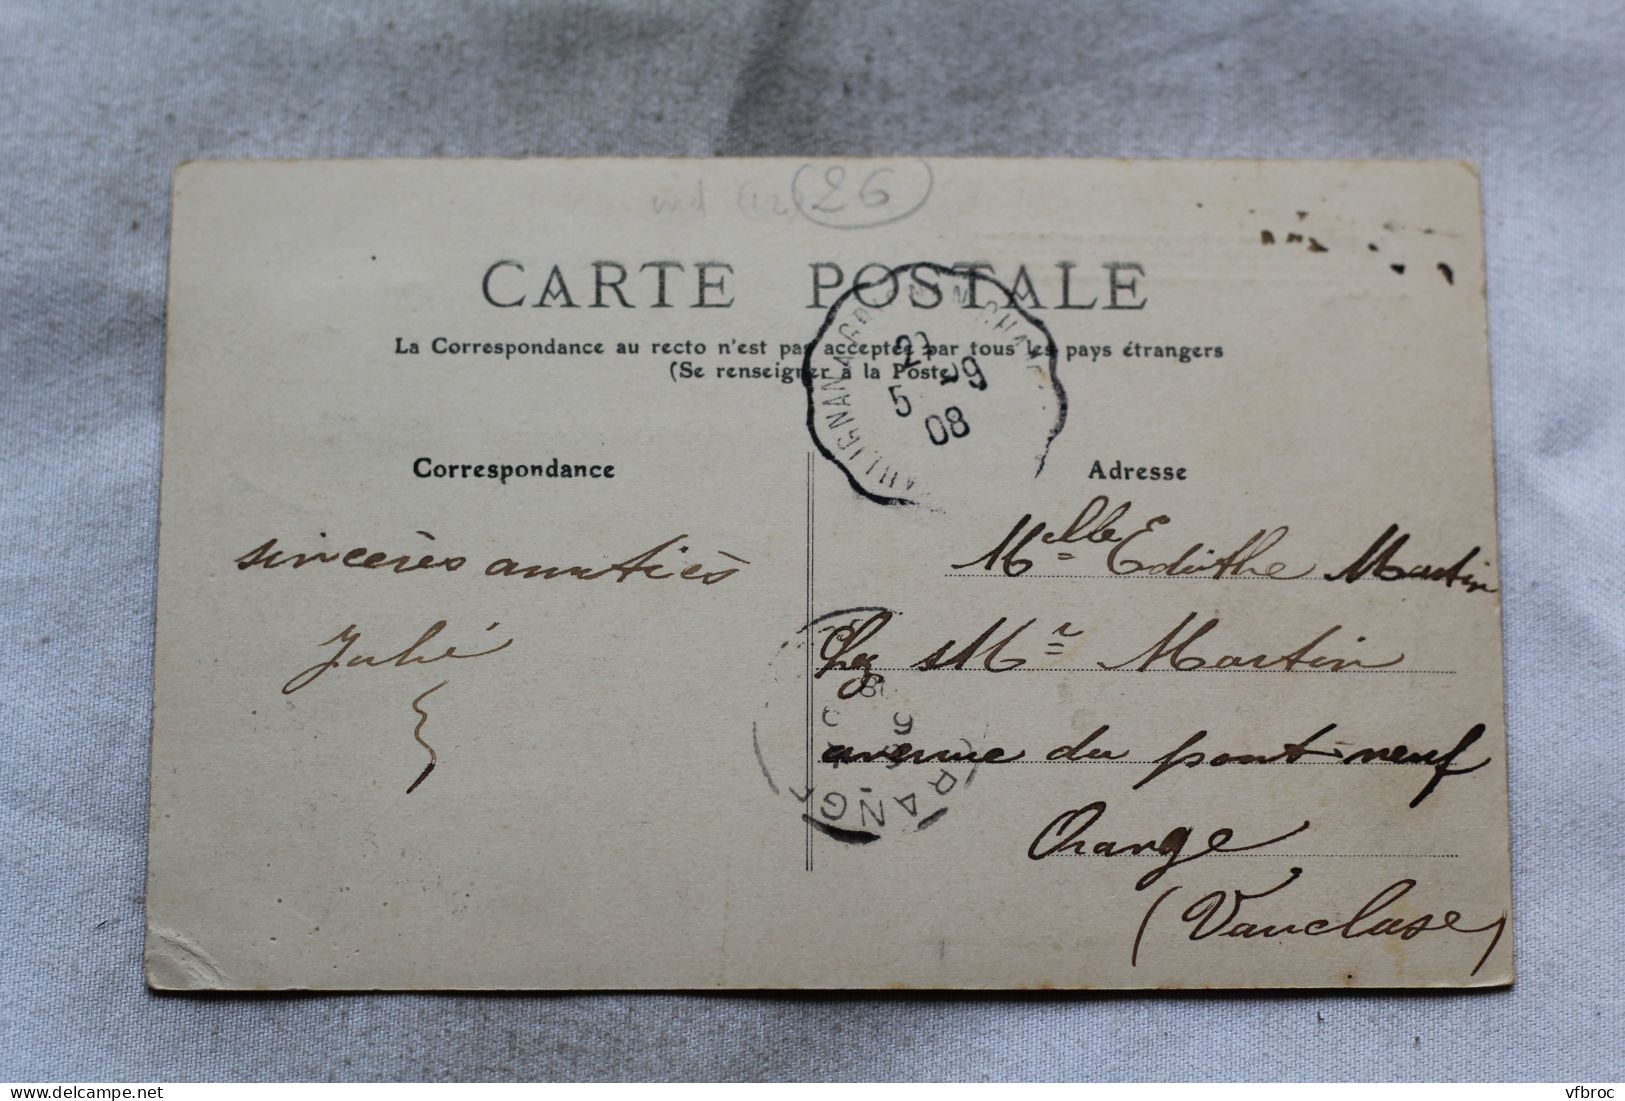 26
CARTE POSTALE
La Correspondance au recto n'est pas acceptée par tous les pays étrangers
(Se renseigner à la Poste)
TAULIGNAN A
5
9
08
Correspondance
Adresse
sincères amitiés
Melle Edithe Martin
Chez Mr Martin
avenue du pont-neuf
Orange
(Vaucluse)
ORANGE
vfbroc